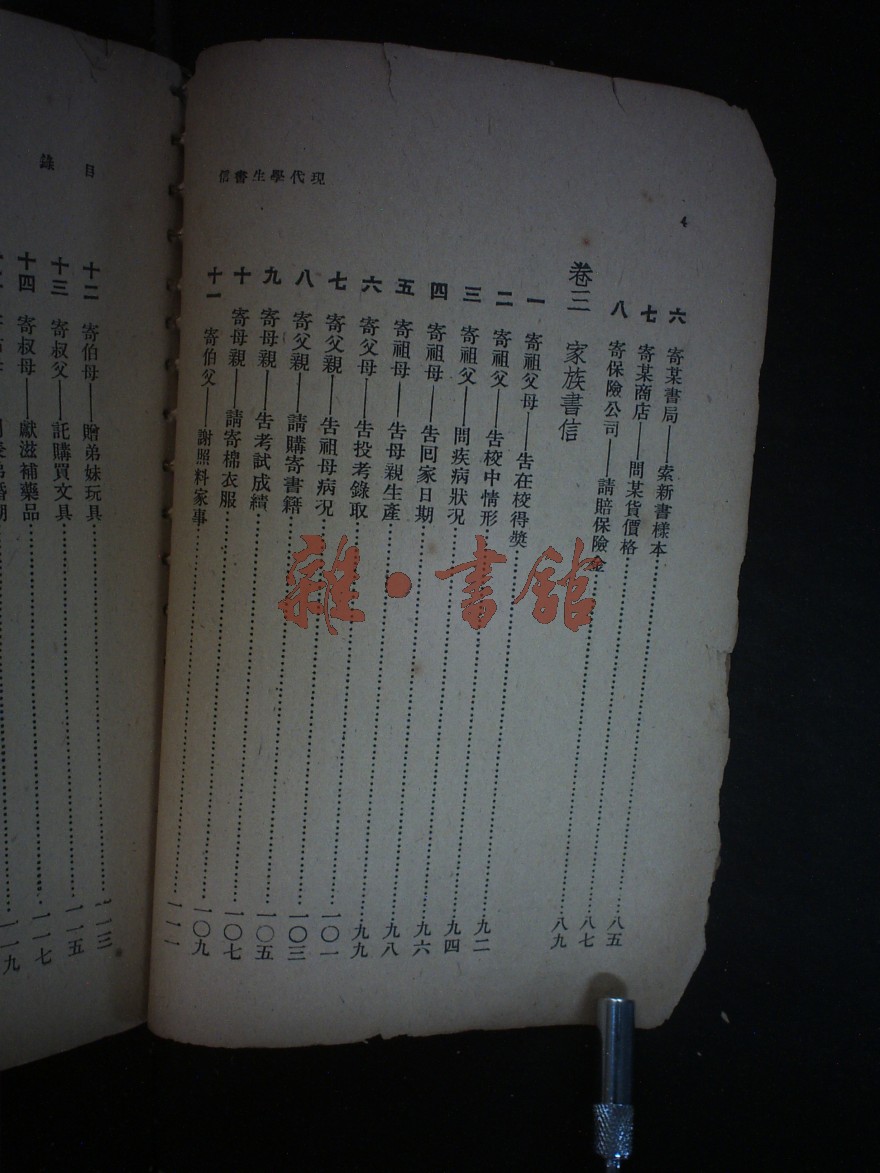 4
現代學生書信
六 寄某書局——索新書樣本……八五
七 寄某商店——問某貨價格……八七
八 寄保險公司——請賠保險金……八九
卷三 家族書信
一 寄祖父母——告在校得獎……九二
二 寄祖父——告校中情形……九四
三 寄祖父——問疾病狀況……九六
四 寄祖母——告回家日期……九八
五 寄祖母——告母親生產……九九
六 寄父母——告投考錄取……一〇一
七 寄父親——告祖母病況……一〇三
八 寄父親——請購寄書籍……一〇五
九 寄母親——告考試成績……一〇七
十 寄母親——請寄棉衣服……一〇九
十一 寄伯父——謝照料家事……一一一
目錄
十二 寄伯母——贈弟妹玩具……一一三
十三 寄叔父——託購買文具……一一五
十四 寄叔母——獻滋補藥品……一一七
一一九
雜·書館